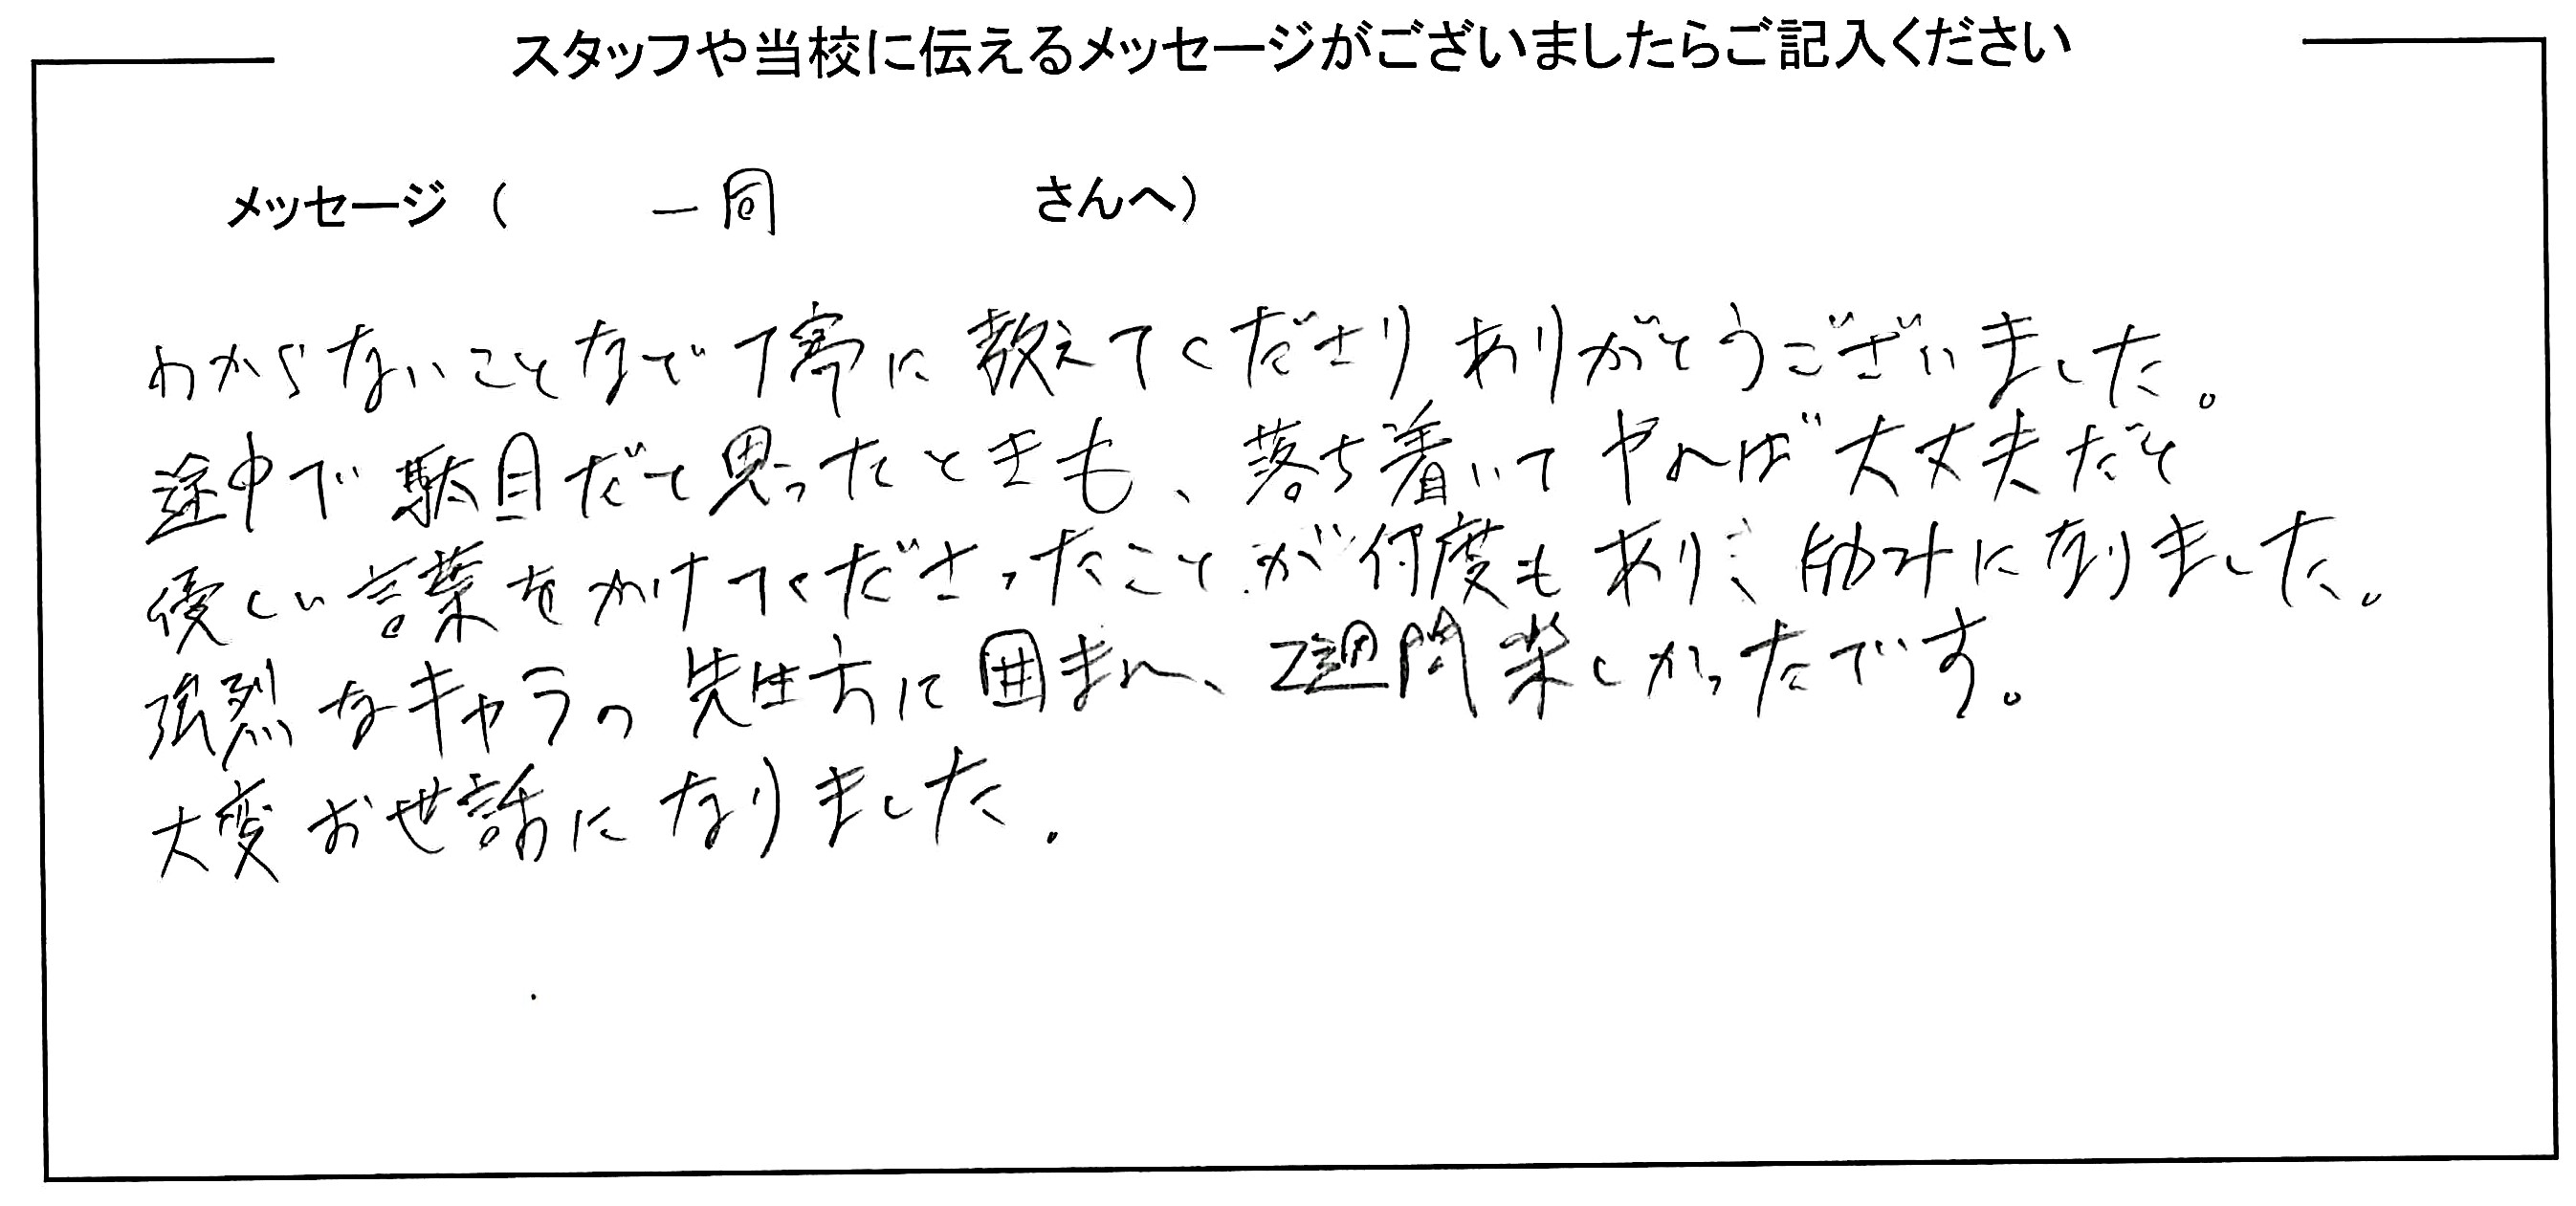 スタッフや当校に伝えるメッセージがございましたらご記入ください
メッセージ（ 一同 さんへ）
わからないことなど丁寧に教えてくださりありがとうございました。
途中で駄目だと思ったときも、落ち着いてやれば大丈夫だと
優しい言葉をかけてくださったことが何度もあり、励みになりました。
強烈なキャラの先生方に囲まれ、2週間楽しかったです。
大変お世話になりました.